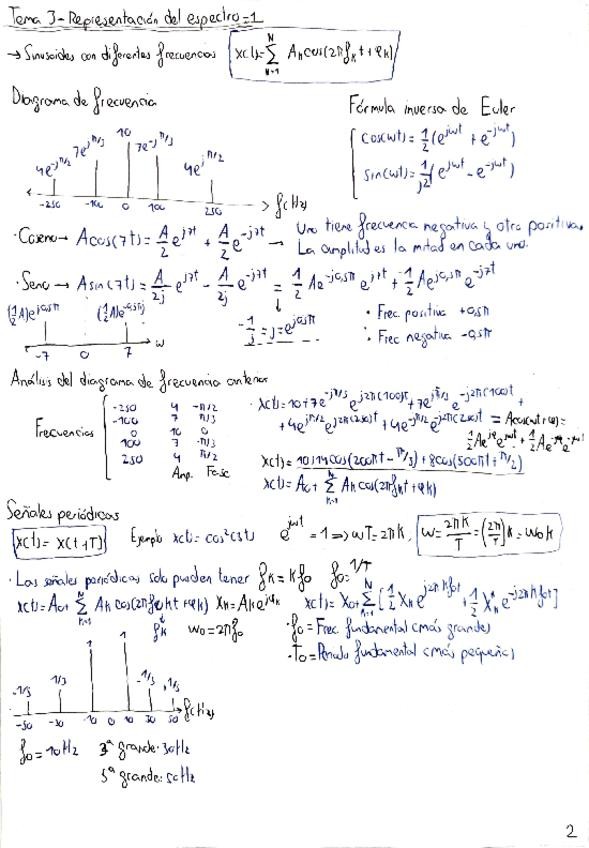 Tema 3- Representación del espectro=1
→ Sinusoides con diferentes frecuencias x(t)=∑ᴺₖ₌₁ Aₖcos(2πfₖt+φₖ)
Diagrama de frecuencia
Fórmula inversa de Euler
4e^-jπ/2 7e^jπ/3 10 7e^-jπ/3 4e^jπ/2
-250 -100 0 100 250 f(Hz)
cos(wt)=1/2(e^jwt + e^-jwt)
sin(wt)=1/j2(e^jwt - e^-jwt)
·Coseno→ Acos(7t)= A/2 e^j7t + A/2 e^-j7t → Uno tiene frecuencia negativa y otro positiva.
La amplitud es la mitad en cada uno.
·Seno → Asin(7t)= A/2j e^j7t - A/2j e^-j7t = 1/2 Ae^-j0,5π e^j7t + 1/2 Ae^j0,5π e^-j7t
(1/2 A)e^j0,5π (1/2 A)e^-0,5πj
-7 0 7 w
-1/j = j = e^j0,5π
· Frec. positiva +0,5π
· Frec negativa -0,5π
Análisis del diagrama de frecuencia anterior
Frecuencias
-250 4 -π/2
-100 7 π/3
0 10 0
100 7 -π/3
250 4 π/2
Amp. Fase
· x(t)=10+7e^-jπ/3 e^j2π(100)t + 7e^jπ/3 e^-j2π(100)t +
+4e^jπ/2 e^j2π(250)t + 4e^-jπ/2 e^-j2π(250)t = Acos(wt+φ)=
1/2 Ae^jφ e^jwt + 1/2 Ae^-jφ e^-jwt
x(t)= 10+14cos(200πt-π/3)+8cos(500πt+π/2)
x(t)= A₀+∑ᴺₖ₌₁ Aₖcos(2πfₖt+φₖ)
Señales periódicas
x(t)= x(t+T) Ejemplo x(t)= cos²(3t) e^jwt =1 ⇒ wT=2πk, w=2πk/T=(2π/T)k=w₀k
·Las señales periódicas solo pueden tener fₖ=kf₀ f₀=1/T
x(t)=A₀+∑ᴺₖ₌₁ Aₖ cos(2πf₀kt+φₖ) Xₖ=Aₖe^jφₖ x(t)= X₀+∑ᴺₖ₌₁[1/2 Xₖe^j2πkf₀t + 1/2 Xₖ* e^-j2πkf₀t]
fₖ w₀=2πf₀
·f₀= Frec. fundamental (más grande)
·T₀= Período fundamental (más pequeño)
-1/5 1/3 1 1 -1/3 1/5
-50 -30 10 0 10 30 50 f(Hz)
f₀=10Hz 3ª grande: 30Hz
5ª grande: 50Hz
2